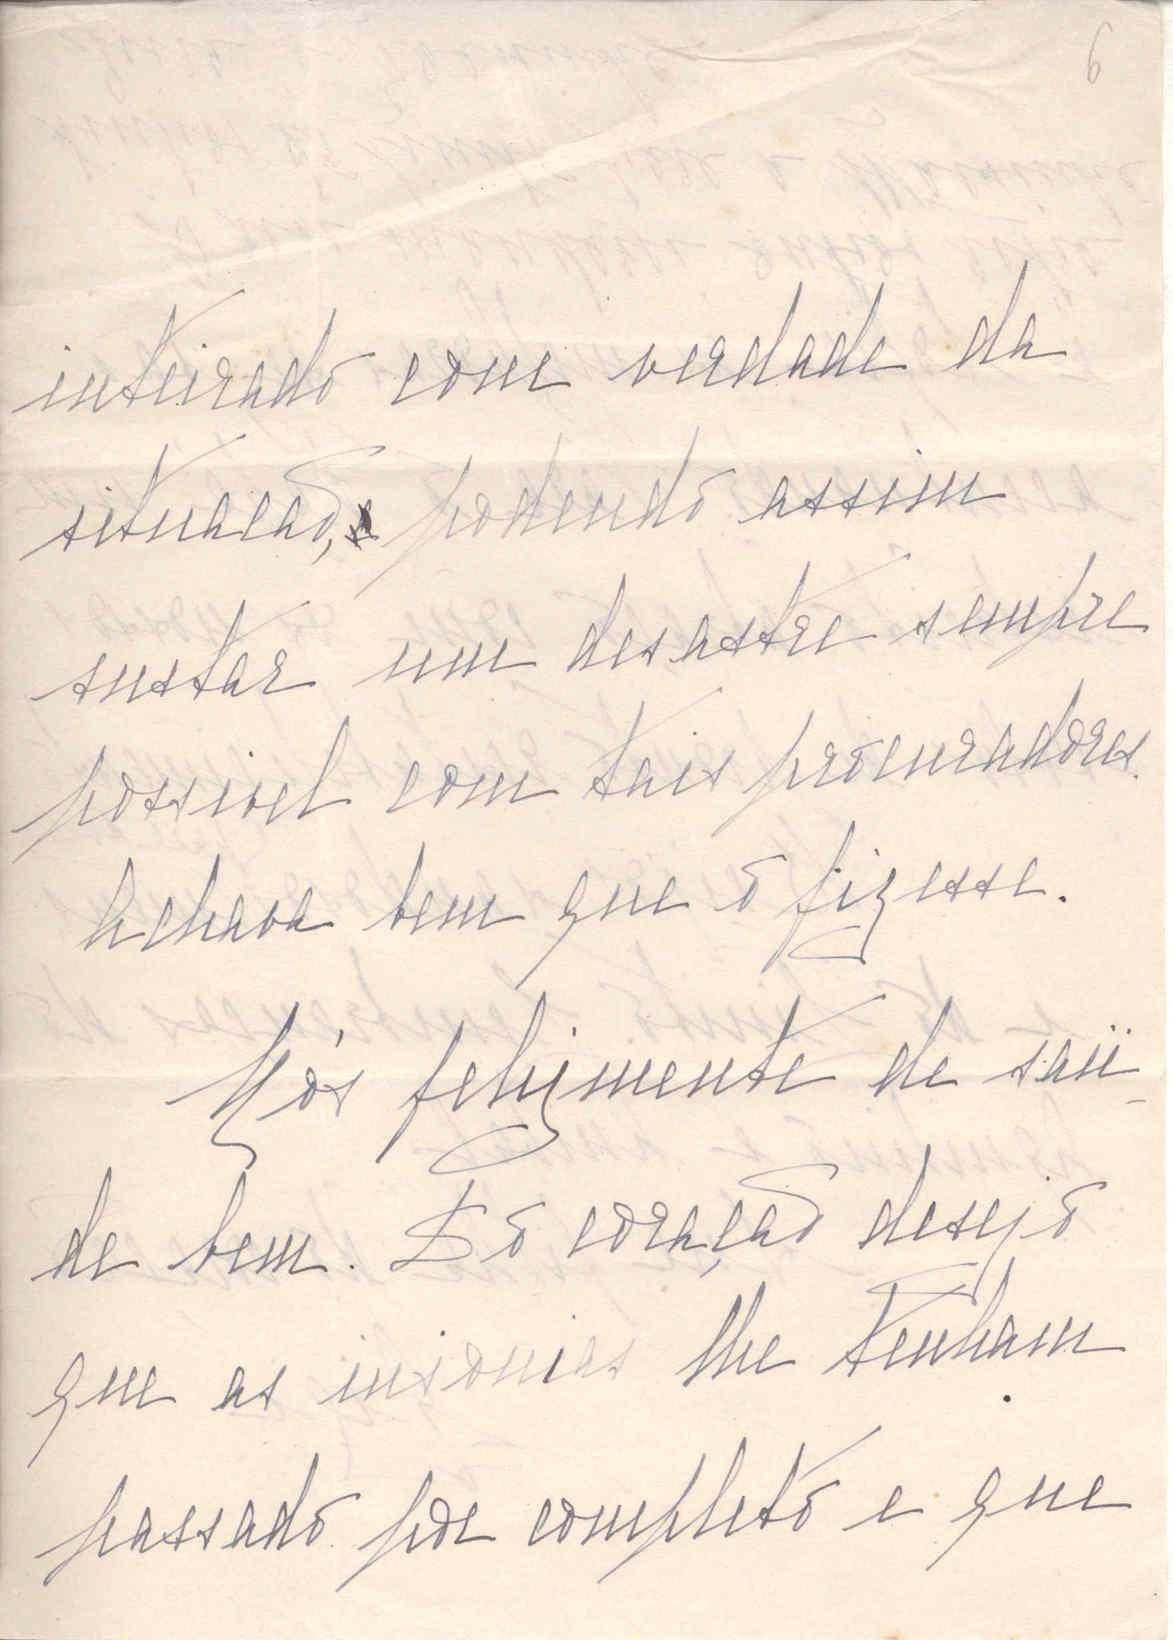 6
inteirado com verdade da
situação, podendo assim
sustar um desastre sempre
possivel com tais procuradores.
Achava bem que o fizesse.
Nós felizmente de saú-
de bem. Do coração desejo
que as insonias lhe tenham
passado por completo e que